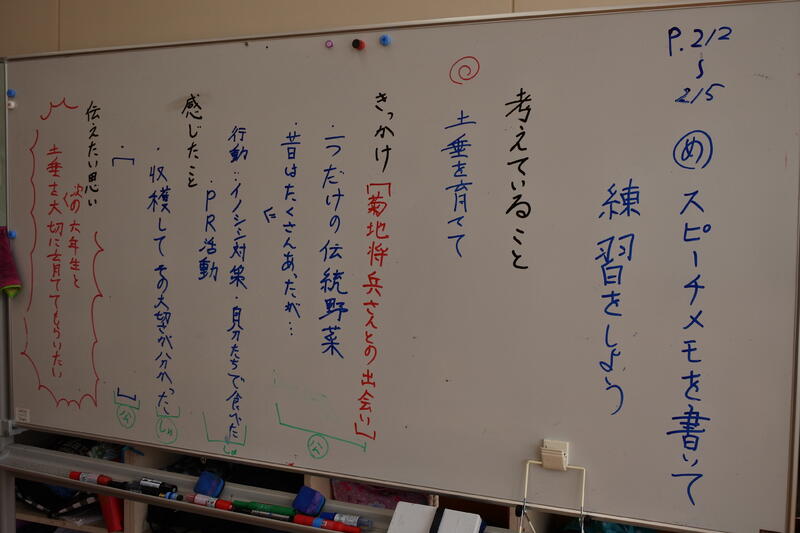 P.212
〜
215
め スピーチメモを書いて
練習をしよう
考えていること
土垂を育てて
きっかけ「菊地将兵さんとの出会い」
・一つだけの伝統野菜
・昔はたくさんあったが…
行動:イノシシ対策・自分たちで食べた
・PR活動
感じたこと
・収穫してその大切さが分かった
・「 」
伝えたい思い
次の六年生と
土垂を大切に育ててもらいたい